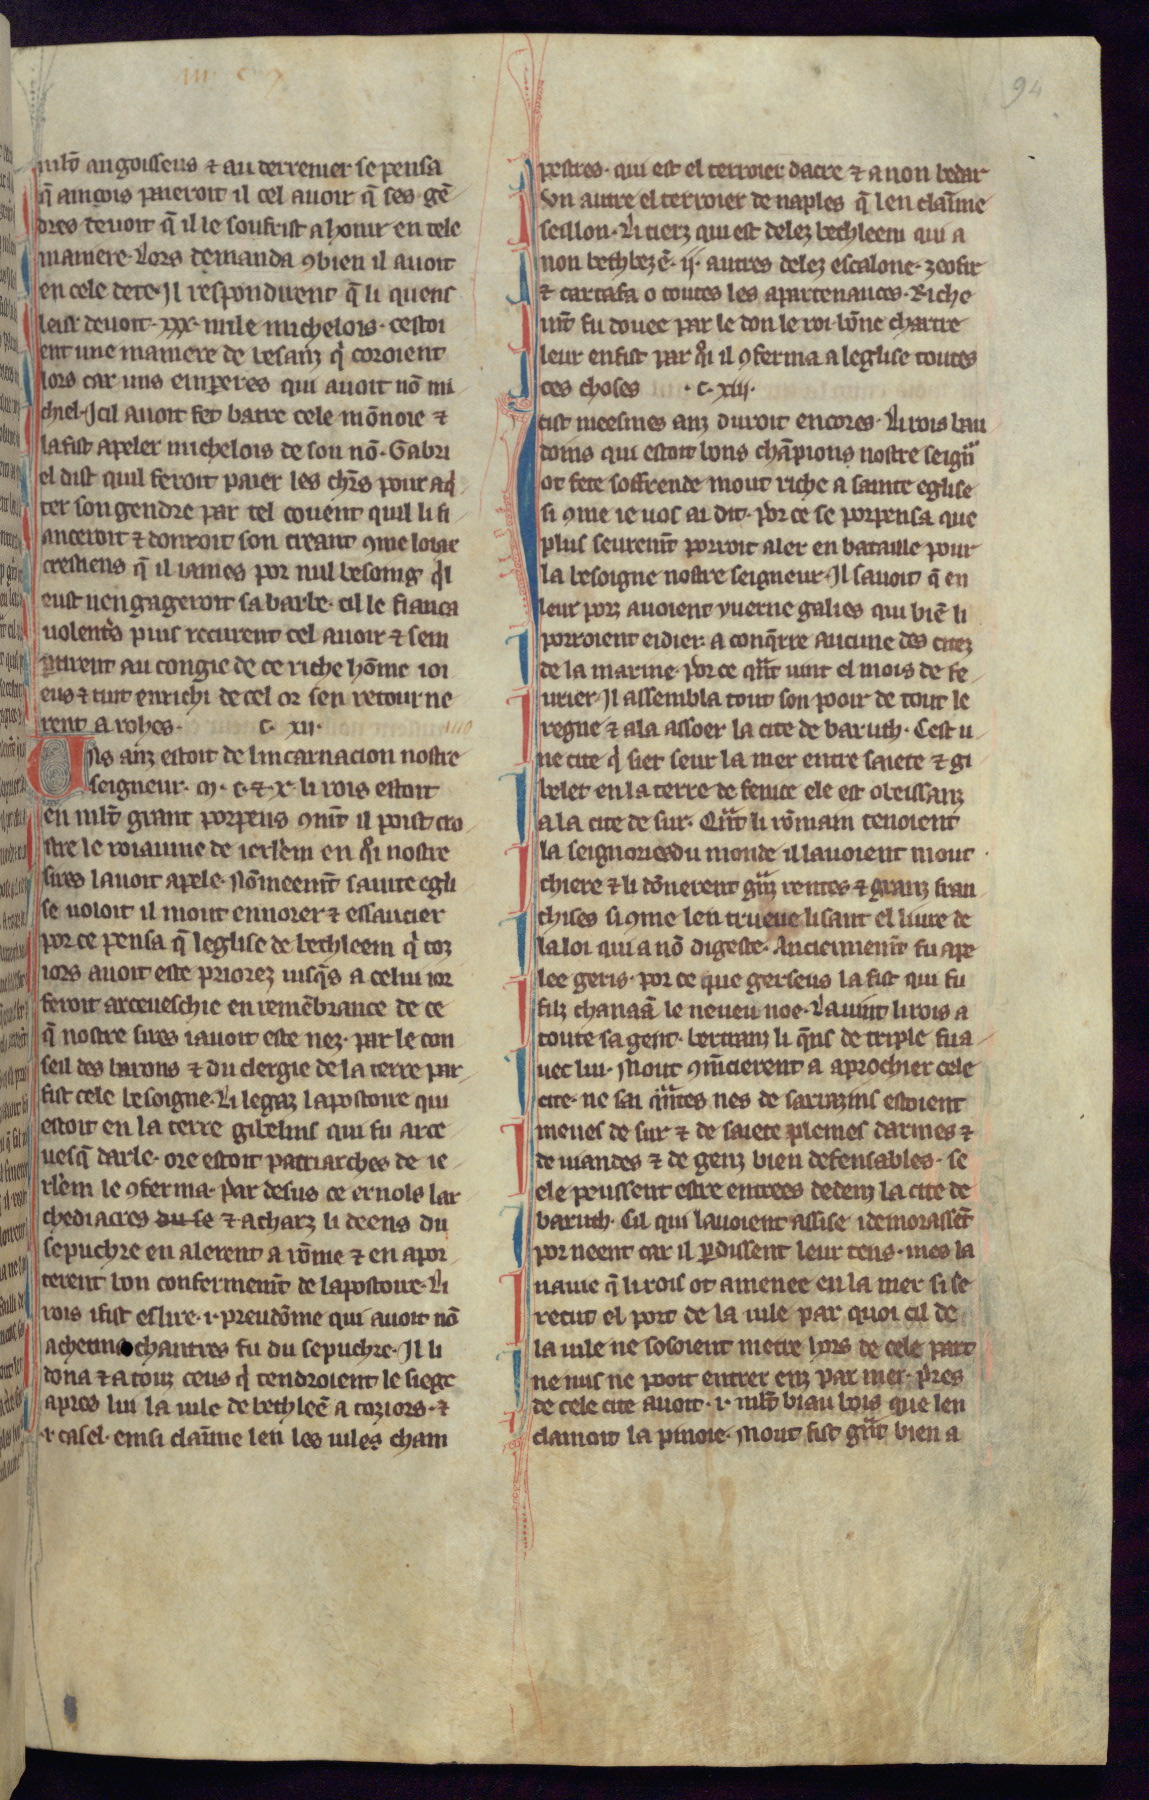 94
mlt̃ angoisseus ⁊ au derrenier se pensa
q̃ aincois paieroit il cel avoir q̃ ses gẽ
dres devoit q̃ il le soufrist a honir en tele
maniere. Lors demanda ꝯbien il avoit
en cele dete. Il respondirent q̃ li quens
leur devoit. xxx. mile michelois. cestoi
ent une maniere de besanz qͥ coroient
lors car uns emperes qui avoit nõ mi
chiel. Icil avoit fet batre cele mõnoie ⁊
la fist apeler michelois de son nõ. Gabri
el dist quil feroit paier les chr̃s pour aq̃
ter son gendre par tel covent quil li fi
anceroit ⁊ donroit son creant ꝯme loiae
crestiens q̃ il iames por nul besoing qͥl
eust nengageroit sa barbe. cil le fianca
volent̃s puis recurent cel avoir ⁊ sem
ꝑtirent au congie de ce riche hõme ioi
eus ⁊ tuit enrichi de cel or sen retourne
rent a rohes. C. XII.
Uns anz estoit de lincarnacion nostre
seigneur. M. C. ⁊. X. li rois estoit
en mlt̃ grant porpens ꝯmt̃ il poist cro
stre le roiaume de ierlem en qͥ nostre
sires lavoit apele. Nõmeemt̃ sainte egli
se voloit il mout ennorer ⁊ essaucier
por ce pensa q̃ leglise de bethleem qͥ toz
iors avoit este priorez iusqs a celui ior
feroit arceveschie en remẽbrance de ce
q̃ nostre sires i avoit este nez. par le con
seil des barons ⁊ du clergie de la terre par
fist cele besoigne. Li legaz lapostoire qui
estoit en la terre gibelins qui fu arce
vesq̃ darle. ore estoit patriarches de ie
rlem le ꝯferma. par desus ce ernols lar
chediacres du se ⁊ acharz li deens du
sepuchre en alerent a rõme ⁊ en apor
terent bon confermemt̃ de lapostoire. Li
rois i fist eslire. i. preudõme qui avoit nõ
achetins chantres fu du sepuchre. Il li
dona ⁊ a touz ceus qͥ tendroient le siege
apres lui la vile de bethleẽ a toziors. ⁊
.i. casel. einsi claime len les viles cham
pestres. qui est el terroier dacre ⁊ a non bedar
Un autre el terroier de naples q̃ len claime
seillon. Li tierz qui est delez bethleem qui a
non bethbezẽ. ii. autres delez escalone. zeofir
⁊ cartafa o toutes les apartenances. Riche
mt̃ fu douee par le don le roi. bõne chartre
leur en fist par qͥ il ꝯferma a leglise toutes
ces choses .C. XIII.
Cist meesmes anz duroit encores. Li rois bau
doins qui estoit bons chãpions nostre seignr̃
ot fete soffrende mout riche a sainte eglise
si ꝯme ie vos ai dit. por ce se porpensa que
plus seuremt̃ porroit aler en bataille pour
la besoigne nostre seigneur. Il savoit q̃ en
leur porz avoient yverne galies qui biẽ li
porroient eidier. a conq̃rre aucune des citez
de la marine. por ce qͣnt vint el mois de fe
vrier. Il assembla tout son pooir de tout le
regne ⁊ ala assoer la cite de baruth. Cest u
ne cite qͥ siet seur la mer entre saiete ⁊ gi
belet en la terre de fenice ele est obeissanz
a la cite de sur. Qͣnt li rõmain tenoient
la seignories du monde il lavoient mout
chiere ⁊ li dõnerent gͣnz rentes ⁊ granz fran
chises si ꝯme len trueve lisant el livre de
la loi qui a nõ digeste. Anciennemt̃ fu ape
lee geris. por ce que gerseus la fist qui fu
filz chanaã le neveu noe. La vint li rois a
toute sa gent. bertranz li q̃ns de triple fu a
vec lui. Mout ꝯmẽcierent a aprochier cele
cite. ne sai qͣntes nes de sarrazins estoient
meues de sur ⁊ de saiete plenies darmes ⁊
de viandes ⁊ de genz bien defensables. se
ele peussent estre entrees dedenz la cite de
baruth. Cil qui lavoient assise i demorassẽt
por neent car il ꝑdissent leur tens. mes la
navie q̃ li rois ot amenee en la mer si se
retint el port de la vile par quoi cil de
la vile ne sosoient metre hors de cele part
ne nus ne pooit entrer enz par mer. pres
de cele cite avoit. i. mlt̃ biau bois que len
clamoit la pinoie. Mout fist gͣnt bien a